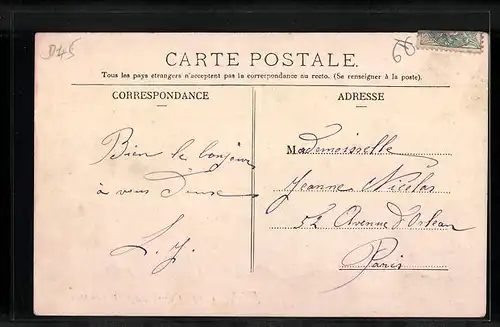 D145
60
CARTE POSTALE.
Tous les pays étrangers n'acceptent pas la correspondance au recto. (Se renseigner à la poste).
CORRESPONDANCE
ADRESSE
Bien le bonjour
à vous
L. J.
Mademoiselle
Jeanne Nicolas
52 Avenue d'Orléan
Paris